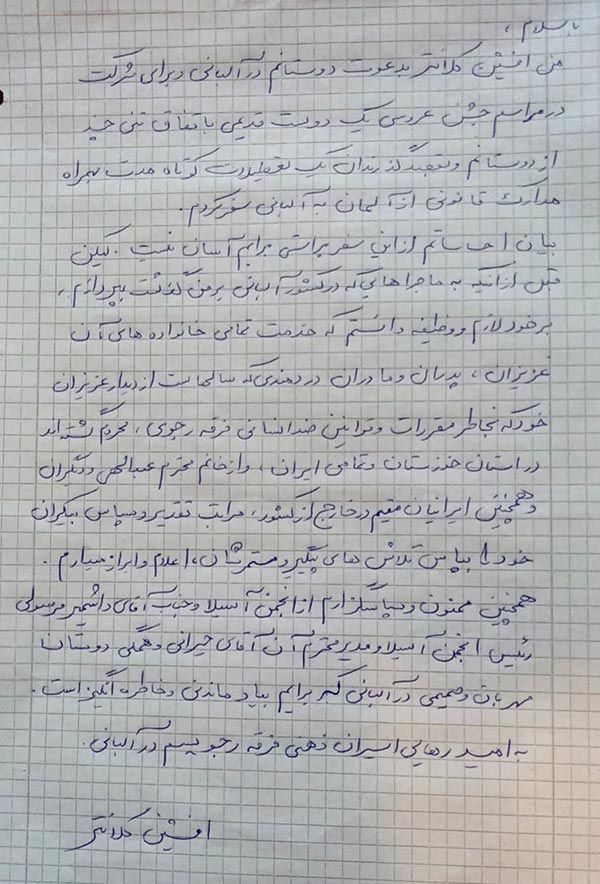 با سلام ،
من افشین کلانتر بدعوت دوستانم در آلبانی و برای شرکت
در مراسم جشن عروسی یک دوست قدیمی باتفاق تنی چند
از دوستانم و بقصد گذراندن یک تعطیلات کوتاه مدت بهمراه
مدارک قانونی از آلمان به آلبانی سفر کردم.
بیان احساساتم از این سفر براستی برایم آسان نیست. لیکن
قبل از آنکه به ماجراهایی که در کشور آلبانی بر من گذشت بپردازم ،
بر خود لازم و وظیفه دانستم که خدمت تمامی خانواده های آن
عزیزان ، پدران و مادران دردمندی که سالهاست از دیدار عزیزان
خود که بخاطر مقررات و قوانین ضد انسانی فرقه رجوی ، محروم گشته اند
در استان خوزستان و تمامی ایران ، و از خانم محترم عبدالهی و دیگران
و همچنین ایرانیان مقیم در خارج از کشور، مراتب تقدیر و سپاس بیکران
خود را بپاس تلاش های پیگیر و مستمرشان ، اعلام و ابراز میدارم .
همچنین ممنون و سپاسگزارم از انجمن آسیلا و جناب آقای داشمیر مرسولی
رئیس انجمن آسیلا و مدیر محترم آن آقای حیرانی و همگی دوستان
مهربان و صمیمی در آلبانی که برایم بیاد ماندنی و خاطره انگیز است .
به امید رهایی اسیران ذهنی فرقه رجویسم در آلبانی.
افشین کلانتر